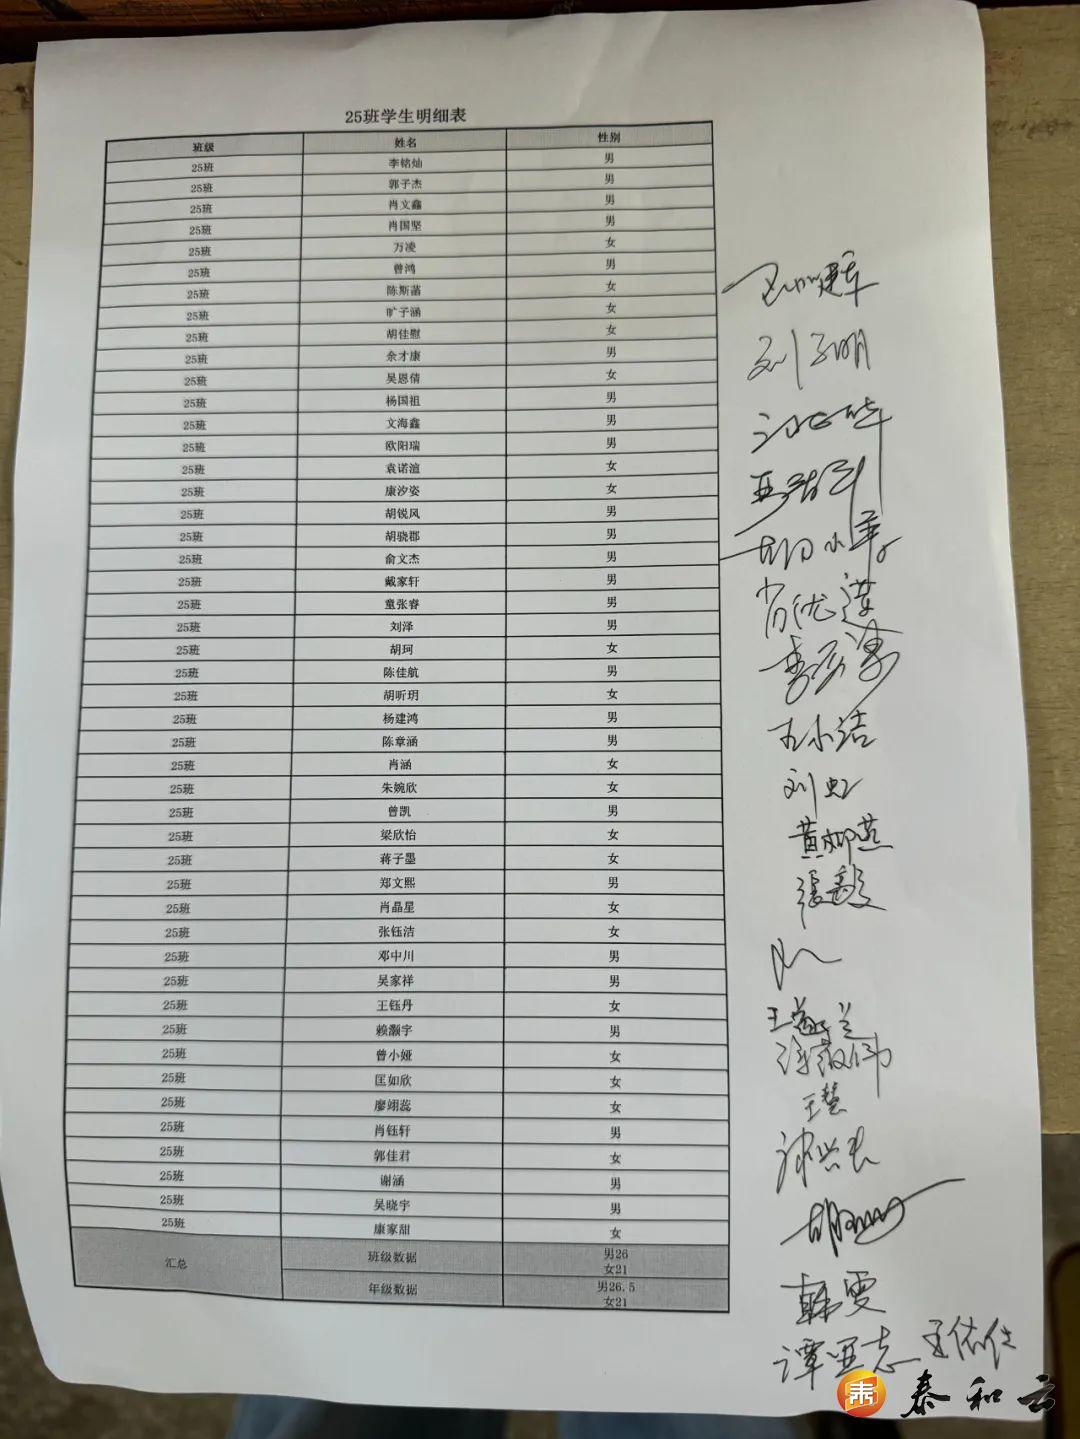 25班学生明细表
班级 姓名 性别
25班 李铭灿 男
25班 郭子杰 男
25班 肖文鑫 男
25班 肖国坚 男
25班 万凌 女
25班 曾鸿 男
25班 陈斯菡 女
25班 旷子涵 女
25班 胡佳慰 女
25班 余才康 男
25班 吴恩倩 女
25班 杨国祖 男
25班 文海鑫 男
25班 欧阳瑞 男
25班 袁诺渲 女
25班 康汐姿 女
25班 胡锐风 男
25班 胡骁郡 男
25班 俞文杰 男
25班 戴家轩 男
25班 童张睿 男
25班 刘泽 男
25班 胡珂 女
25班 陈佳航 男
25班 胡昕玥 女
25班 杨建鸿 男
25班 陈章涵 男
25班 肖涵 女
25班 朱婉欣 女
25班 曾凯 男
25班 梁欣怡 女
25班 蒋子墨 女
25班 郑文熙 男
25班 肖晶星 女
25班 张钰洁 女
25班 邓中川 男
25班 吴家祥 男
25班 王钰丹 女
25班 赖灏宇 男
25班 曾小娅 女
25班 匡如欣 女
25班 廖翊蕊 女
25班 肖钰轩 男
25班 郭佳君 女
25班 谢涵 男
25班 吴晓宇 男
25班 康家甜 女
汇总 班级数据 男26
女21
年级数据 男26.5
女21
刘子明
肖优莲
刘虹
黄柳燕
张毅
王慧
韩雯
谭亚志
泰和云